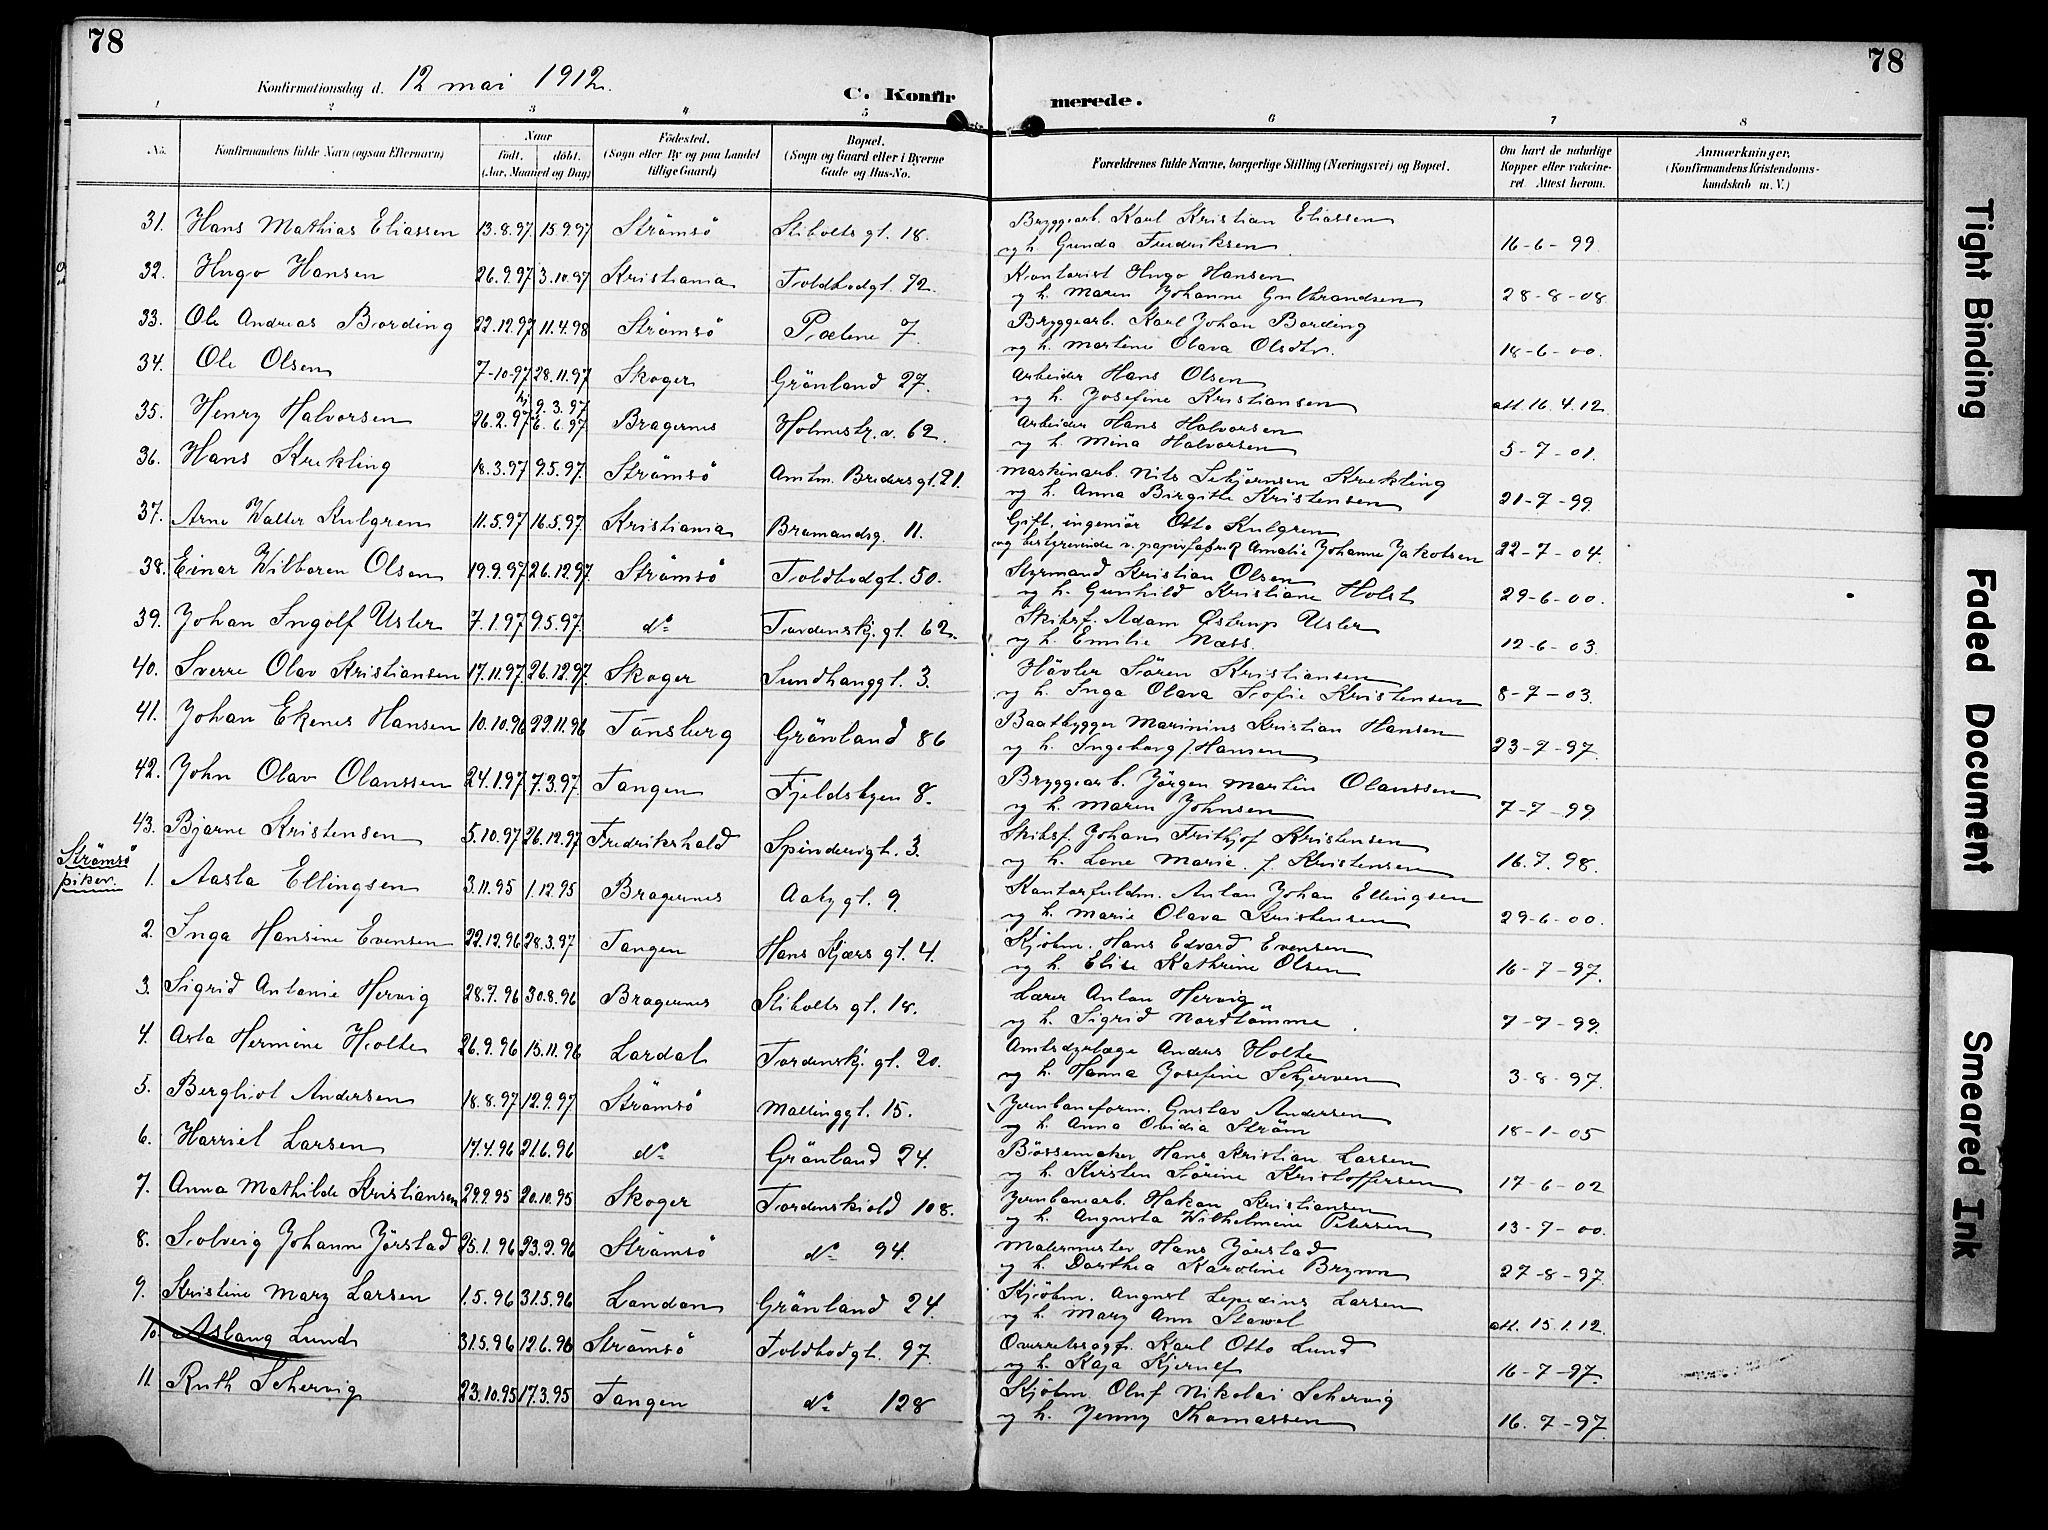 78
78
Konfirmationsdag d. 12 mai 1912.
C. Konfirmerede.
1 2 3 4 5 6 7 8
No. Konfirmandens fulde Navn (ogsaa Efternavn) Naar født. døbt. (Aar, Maaned og Dag) Fødested. (Sogn eller By og paa Landet tillige Gaard) Bopæl. (Sogn og Gaard eller i Byerne Gade og Hus-No. Forældrenes fulde Navne, borgerlige Stilling (Næringsvei) og Bopæl. Om havt de naturlige Kopper eller vakcineret. Attest herom. Anmærkninger, (Konfirmandens Kristendomskundskab m. V.)
31. Hans Mathias Eliassen 13.8.97 15.9.97 Strømsö Stibolts gt. 18. Bryggearb. Karl Kristian Eliassen
og h. Gunda Fredriksen 16-6-99.
32. Hugo Hansen 26.9.97 3.10.97 Kristiania Toldbodgt. 72. Kontorist Hugo Hansen
og h. Maren Johanne Gulbrandsen 28-8-08
33. Ole Andreas Bording 22.12.97 11.4.98 Strömsö Pælene 7. Bryggearb. Karl Johan Bording
og h. Martine Olava Olsdtr. 18-6-00.
34. Ole Olsen 7-10-97 28.11.97 Skoger Grönland 27. Arbeider Hans Olsen
og h. Josefine Kristiansen att. 16.4.12
35. Henry Halvorsen 26.2.97 hj. 9.3.97 6.6.97 Bragernes Holmestr.v. 62. Arbeider Hans Halvorsen
og h. Mina Halvorsen 5-7-01.
36. Hans Krekling 18.3.97 9.5.97 Strömsö Amtm. Bredersgt. 21. Maskinarb. Nils Krekling
og h. Anna Birgitte Kristensen 21-7-99
37. Arne Walter Kulgren 11.5.97 16.5.97 Kristiania 11. Gift, ingeniör Otto Kulgren
og bestyrerinde v. papirfabrik Amalie Johanne Jakobsen 22-7-04.
38. Einar Wilboren Olsen 19.9.97 26.12.97 Strömsö Toldbodgt. 50. Styrmand Kristian Olsen
og h. Gunhild Kristiane Holst 29-6-00.
39. Johan Ingolf Usler 7.1.97 9.5.97 do Tordenskj. gt. 62. Skibsf. Adam Østrup Usler
og h. Emilie Næss. 12-6-03.
40. Sverre Olav Kristiansen 17.11.97 26.12.97 Skoger Sundhauggt. 3. Hövler Sören Kristiansen
og h. Inga Olava Sofie Kristensen 8-7-03.
41. Johan Ekenes Hansen 10.10.96 22.11.96 Tönsberg Grönland 86 Baatbygger Marinius Kristian Hansen
og h. Ingeborg f. Hansen 23-9-97.
42. John Olav Olaussen 24.1.97 7.3.97 Tangen Fjeldsbyen 8. Bryggearb. Jörgen Martin Olaussen
og h. Maren Johnsen 7-7-99
43. Bjarne Kristensen 5.10.97 26.12.97 Fredrikshald Spinderigt. 3. Skibsf. Johans Frithjof Kristensen
og h. Lone Marie f. Kristensen 16.7.98.
Strømsö piker.
1. Aasta Ellingsen 3.11.95 1.12.95 Bragernes Aabygt. 9. Kontorfuldm. Anton Johan Ellingsen
og h. Marie Olava Kristensen 29-6-00.
2. Inga Hansine Evensen 22.12.96 28.3.97 Tangen Hans Kjærs gt. 4. Kjøbm. Hans Edvard Evensen
og h. Elise Kathrine Olsen 16-7-97.
3. Sigrid Antonie Hervig 28.7.96 30.8.96 Bragernes Stibolts gt. 18. Lærer Anton Hervig
og h. Sigrid Nordtömme. 7-7-99.
4. Asta Hermine Holte 26.9.96 15.11.96 Lardal Tordenskj. gt. 20. Amtsdyrlæge Anders Holte
og h. Hanna Josefine Schjerven 3-8-97.
5. Bergliot Andersen 18.8.97 12.9.97 Strömsö Mallinggt. 15. Jernbaneform. Gustav Andersen
og h. Anna Obidia Ström 18-1-05
6. Harriet Larsen 17.4.96 21.6.96 do Grönland 24. Bössemaker Hans Kristian Larsen
og h. Kirsten Sörine Kristoffersen 17-6-02
7. Anna Mathilde Kristiansen 29.9.95 20.10.95 Skoger Tordenskiold 108. Jernbanearb. Hakon Kristiansen
og h. Augusta Wilhelmine Petersen 13-7-00.
8. Solveig Johanne Jörstad 25.1.96 23.2.96 Strömsö do 94. Malermester Hans Jörstad
og h. Dorthea Karoline Brynn 27-8-97.
9. Kristine Mary Larsen 1.5.96 31.5.96 London Grönland 24 Kjöbm. August Larsen
og h. Mary Ann Stowel att. 15.1.12.
10. Aslaug Lund 31.5.96 12.6.96 Strömsö Toldbodgt. 97. Overretssagf. Karl Otto Lund
og h. Kaja Kjernef 16-7-97.
11. Ruth Schervig 23.10.95 17.3.95 Tangen do 128 Kjöbm. Oluf Nikolai Schervig
og h. Jenny Thomassen 16.7-97.
Tight Binding
Faded Document
Smeared Ink